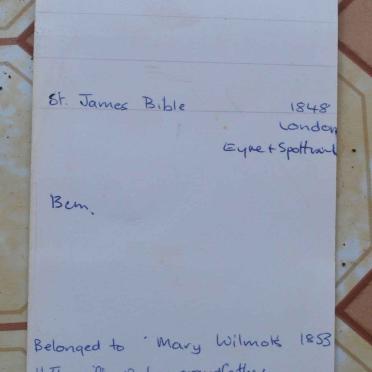 St. James Bible 1848
London
Eyre + Spottiswood
Bem.
Belonged to "Mary Wilmots 1853